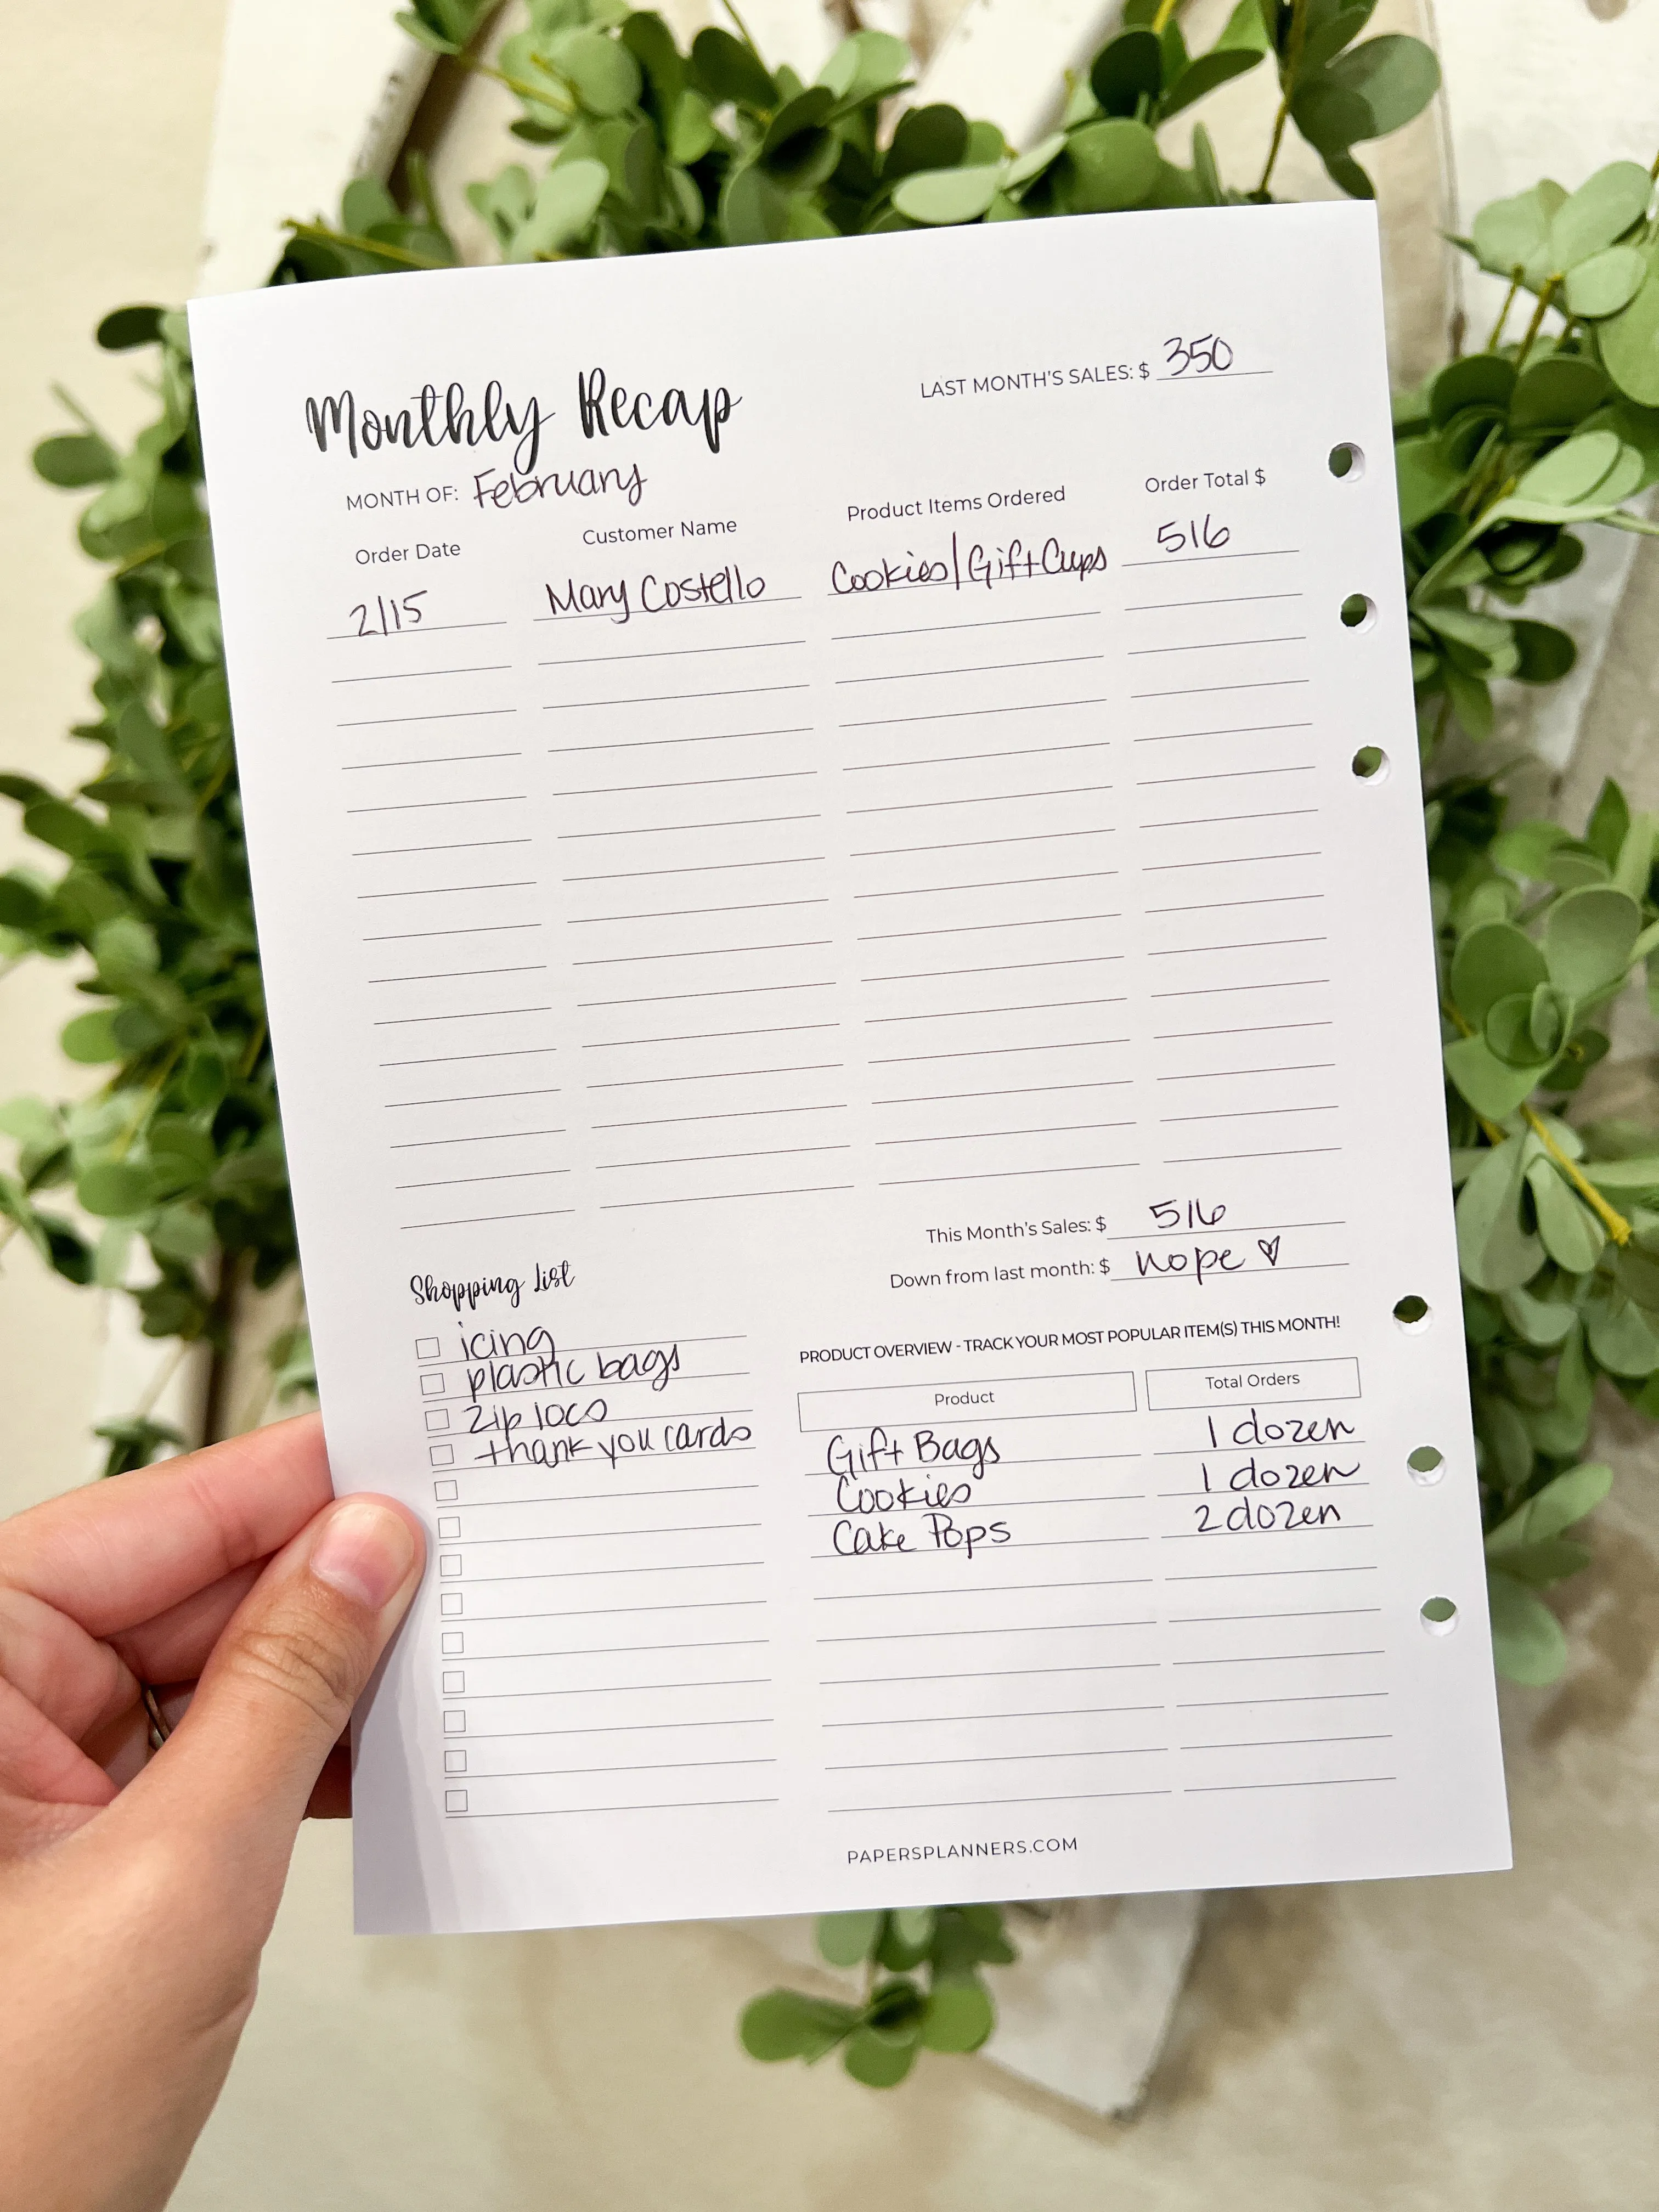 LAST MONTH'S SALES: $ 350
Monthly Recap
MONTH OF: February
Order Date Customer Name Product Items Ordered Order Total $
2/15 Mary Costello Cookies/Gift Cups 516
This Month's Sales: $ 516
Down from last month: $ nope ♡
Shopping List
icing
plastic bags
zip locs
thank you cards
PRODUCT OVERVIEW - TRACK YOUR MOST POPULAR ITEM(S) THIS MONTH!
Product Total Orders
Gift Bags 1 dozen
Cookies 1 dozen
Cake Pops 2 dozen
PAPERSPLANNERS.COM